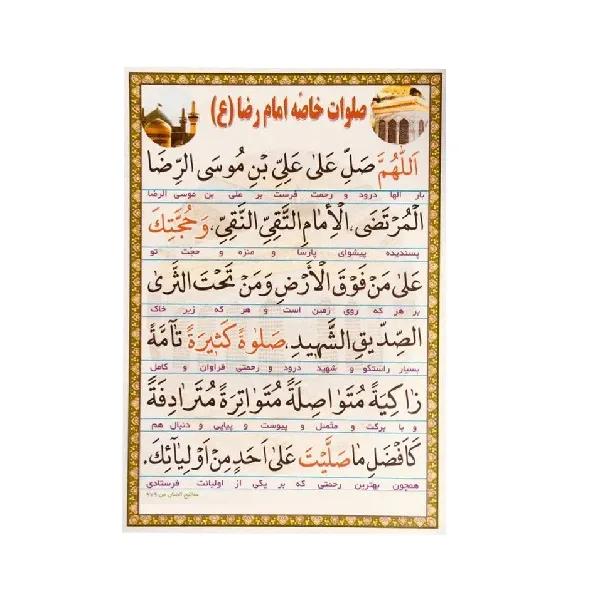 صلوات خاصّه امام رضا (ع)
اَللّٰهُمَّ صَلِّ عَلیٰ عَلِیِّ بْنِ مُوسَی الرِّضَا
بار الها درود و رحمت فرست بر علی بن موسی الرضا
الْمُرْتَضَی، الْأِمَامِ التَّقِیِّ النَّقِیِّ، وَ حُجَّتِكَ
پسندیده پیشوای پارسا و منزه و حجّت تو
عَلیٰ مَنْ فَوْقَ الْأَرْضِ وَ مَنْ تَحْتَ الثَّریٰ
بر هر که روی زمین است و هر که زیر خاک
الصِّدّیقِ الشَّهیدِ، صَلوٰةً كَثیرَةً تٰامَّةً
بسیار راستگو و شهید درود و رحمتی فراوان و کامل
زٰاكِیَةً مُتَوٰاصِلَةً مُتَوٰاتِرَةً مُتَرٰادِفَةً
و با برکت و متّصل و پیوست و پیاپی و دنبال هم
كَاَفْضَلِ مٰا صَلَّیْتَ عَلیٰ اَحَدٍ مِنْ اَوْلِیٰائِكَ.
همچون بهترین رحمتی که بر یکی از اولیائت فرستادی
مفاتیح الجنان ص